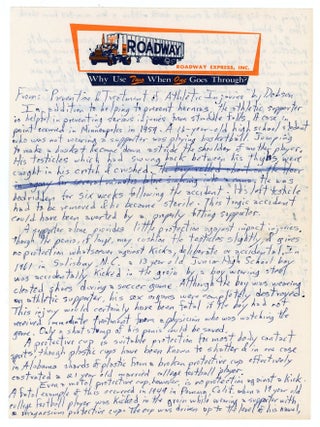 ROADWAY
ROADWAY EXPRESS, INC.
Why Use Two When One Goes Through?
From: Prevention & Treatment of Athletic Injuries by Dobson
In addition to helping to prevent hernias, the athletic supporter
is helpful in preventing serious injuries from straddle falls. A case in
point occurred in Minneapolis in 1959. A 16-year-old high school student
who was not wearing a supporter was playing basketball. Jumping
to make a basket he came down astride the shoulder of another player.
His testicles which had swung back between his thighs were
caught in his crotch & crushed.
bedridden for six weeks following the accident. His left testicle
had to be removed & he became sterile. This tragic accident
could have been averted by a properly fitting supporter.
A supporter alone provides little protection against impact injuries,
though the penis, if large, may cushion the testicles slightly, it gives
no protection whatsoever against kicks, deliberate or accidental. In
1961 in Salisbury N.C. a 13 year old Junior High School boy
was accidentally kicked in the groin by a boy wearing steel
cleated shoes during a soccer game. Although the boy was wearing
an athletic supporter, his sex organs were completely destroyed.
This injury would certainly have been fatal if the boy had not
received immediate treatment from a physician who was watching the
game. Only a short stump of his penis could be saved.
A protective cup is suitable protection for most body contact
sports though plastic cups have been known to shatter & in one case
in Alabama shards of plastic from a broken protective cup effectively
castrated a 21 year old married college football player.
Even a metal protective cup, however, is no protection against a kick.
A fatal example of this occurred in 1949 in Pomona, Calif. when a 19 year old
college football player was kicked in the groin while wearing a supporter with
a magnesium protective cup. The cup was driven up to the level of his navel,